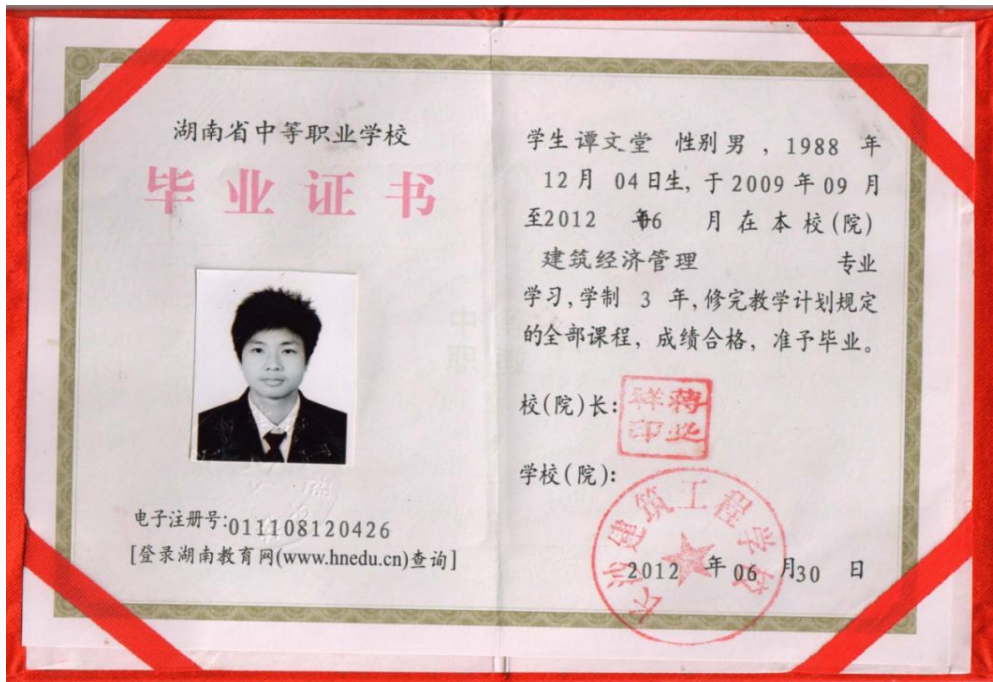 湖南省中等职业学校
毕业证书
电子注册号:011108120426
[登录湖南教育网(www.hnedu.cn)查询]
学生 谭文堂 性别 男 , 1988 年
12 月 04 日生, 于 2009 年 09 月
至2012 年6 月 在 本 校(院)
建筑经济管理 专业
学习,学制 3 年,修完教学计划规定
的全部课程, 成绩合格, 准予毕业。
校(院)长:
蒋业祥印
学校(院):
长沙建筑工程学校
2012 年 06 月30 日